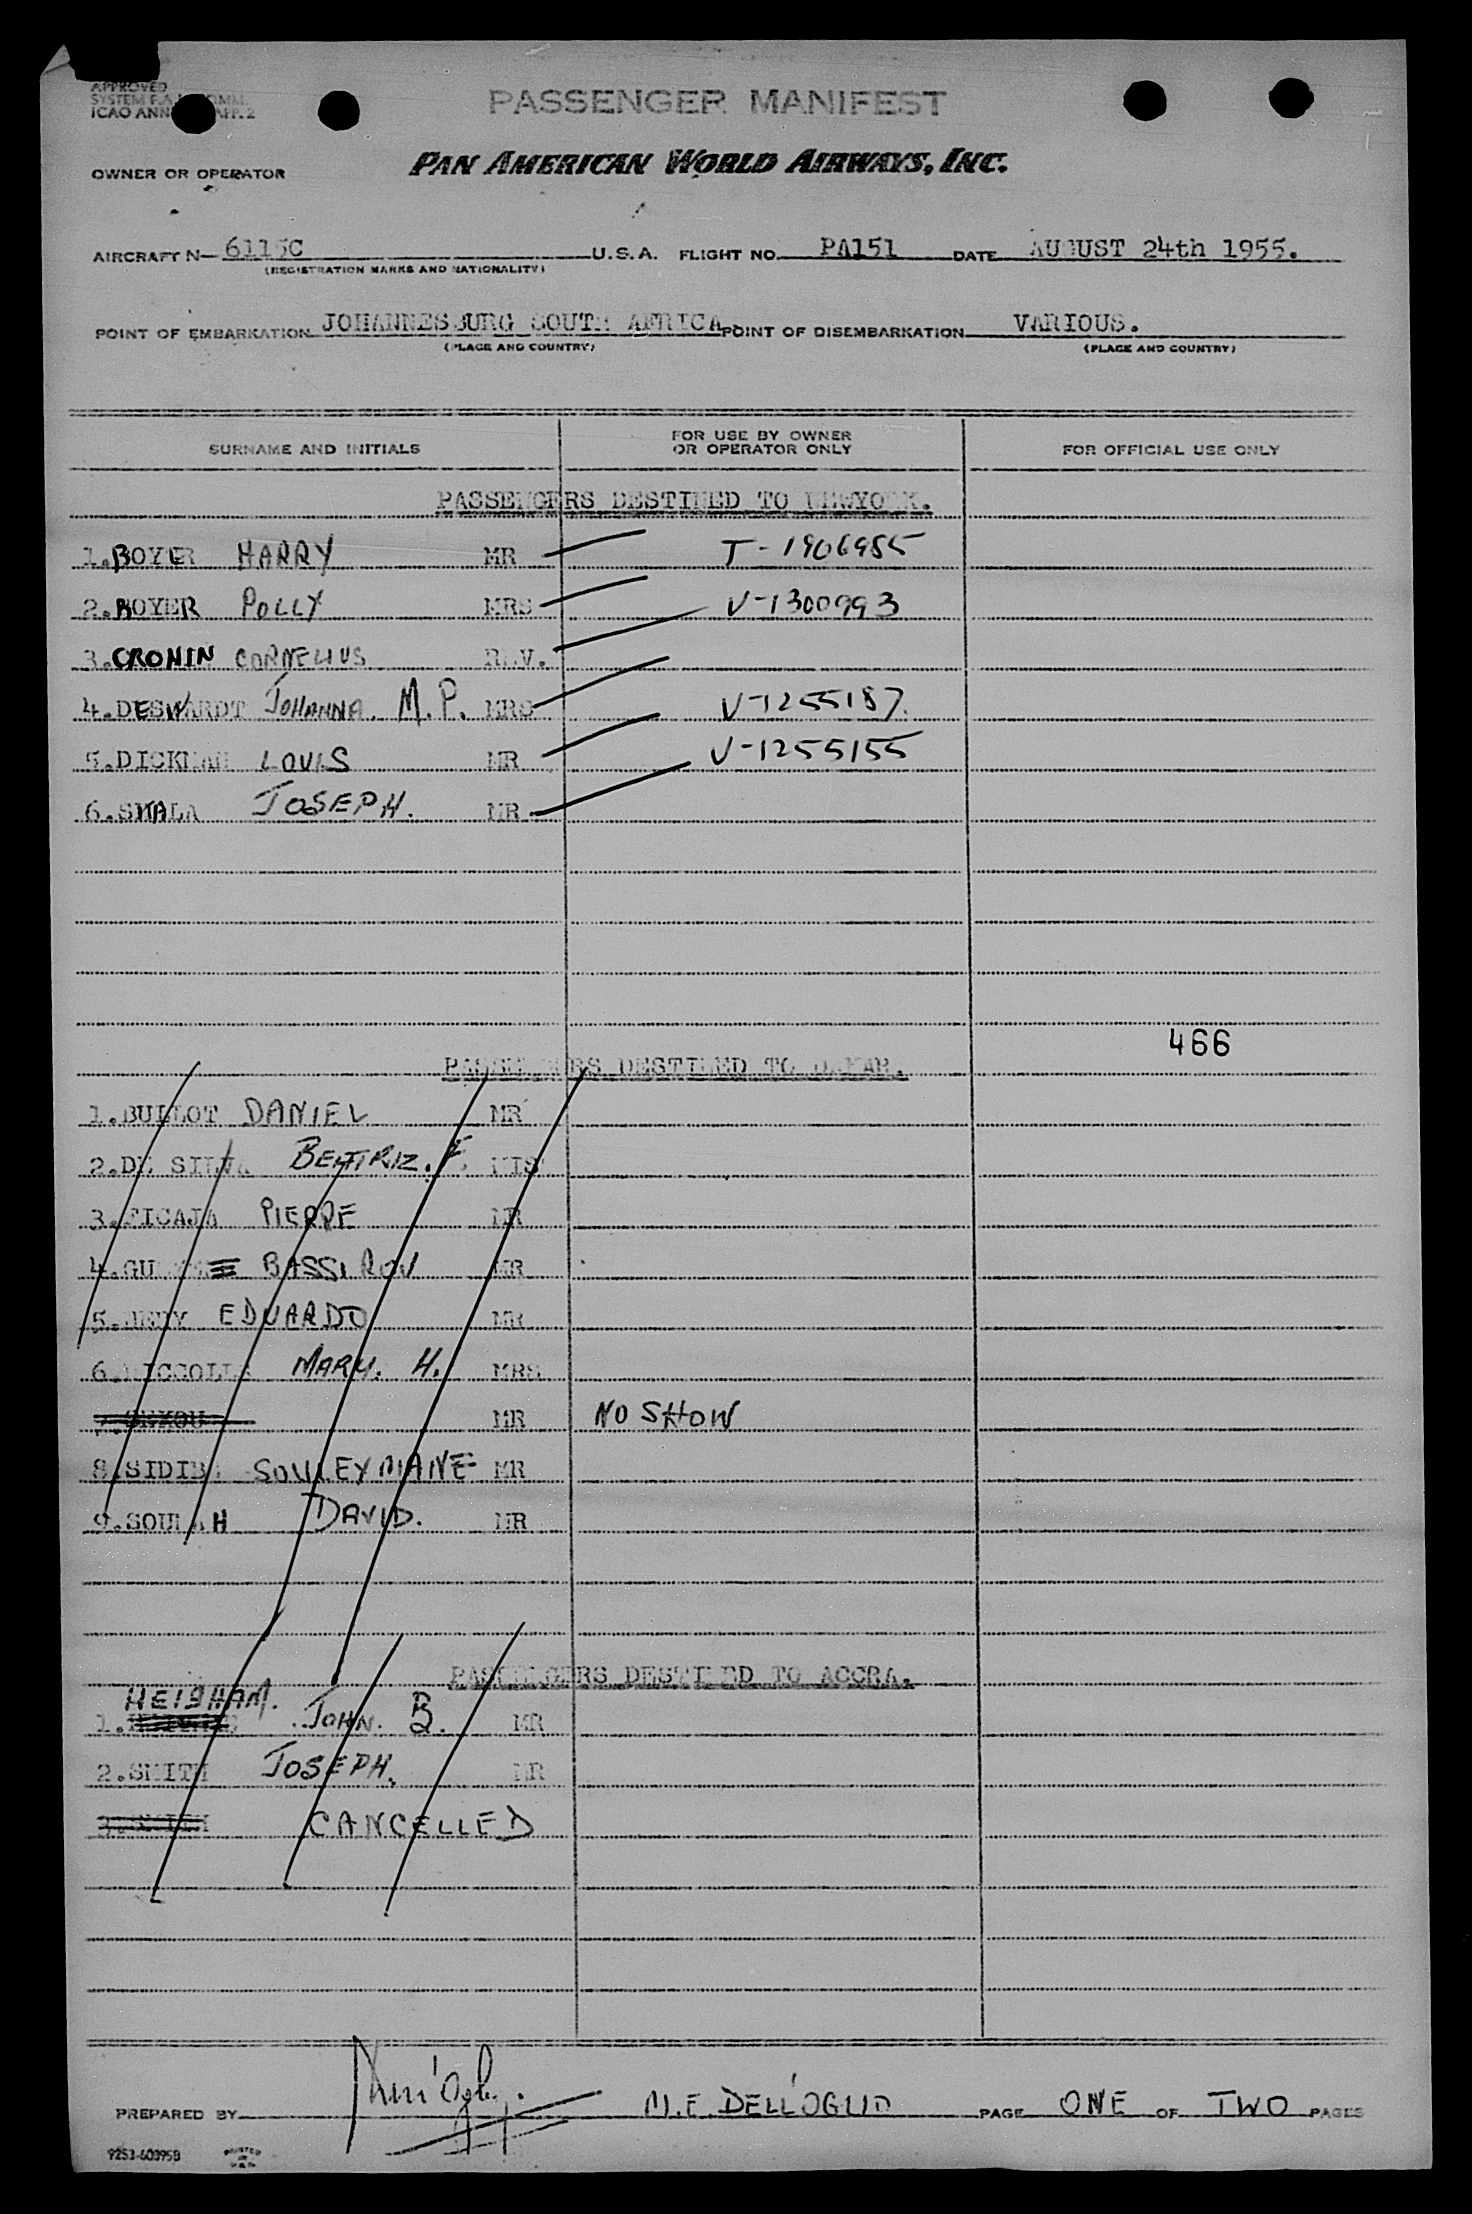 APPROVED
ICAO ANN APP. 2
PASSENGER MANIFEST
OWNER OR OPERATOR PAN AMERICAN WORLD AIRWAYS, INC.
AIRCRAFT N- 6115C U.S.A. FLIGHT NO. PA151 DATE AUGUST 24th 1955.
(REGISTRATION MARKS AND NATIONALITY)
POINT OF EMBARKATION JOHANNESBURG SOUTH AFRICA POINT OF DISEMBARKATION VARIOUS.
(PLACE AND COUNTRY) (PLACE AND COUNTRY)
SURNAME AND INITIALS FOR USE BY OWNER OR OPERATOR ONLY FOR OFFICIAL USE ONLY
PASSENGERS DESTINED TO NEWYORK.
1.BOYER HARRY MR T-1906985
2.BOYER POLLY MRS V-1300993
3.CRONIN CORNELIUS REV.
4.DESWARDT JOHANNA. M.P. MRS V-1255187.
5.DICKMAN LOUIS MR V-1255155
6.SKALA JOSEPH. MR
466
PASSENGERS DESTINED TO DAKAR.
1.BULLOT DANIEL MR
2.DE SILVA BEATRIZ. F. MIS
3. PIERRE MR
4.GU BASSIROU MR
5. EDUARDO MR
6. MARY. H. MRS
7.SEKOU MR NO SHOW
8.SIDIBE SOULEYMANE MR
9.SOULAH DAVID. MR
PASSENGERS DESTINED TO ACCRA.
HEIGHAM.
1. JOHN. B. MR
2.SMITH JOSEPH. MR
3. CANCELLED
PREPARED BY M.E. DELL'OGLIO PAGE ONE OF TWO PAGES
9253-60395B PRINTED IN U.S.A.